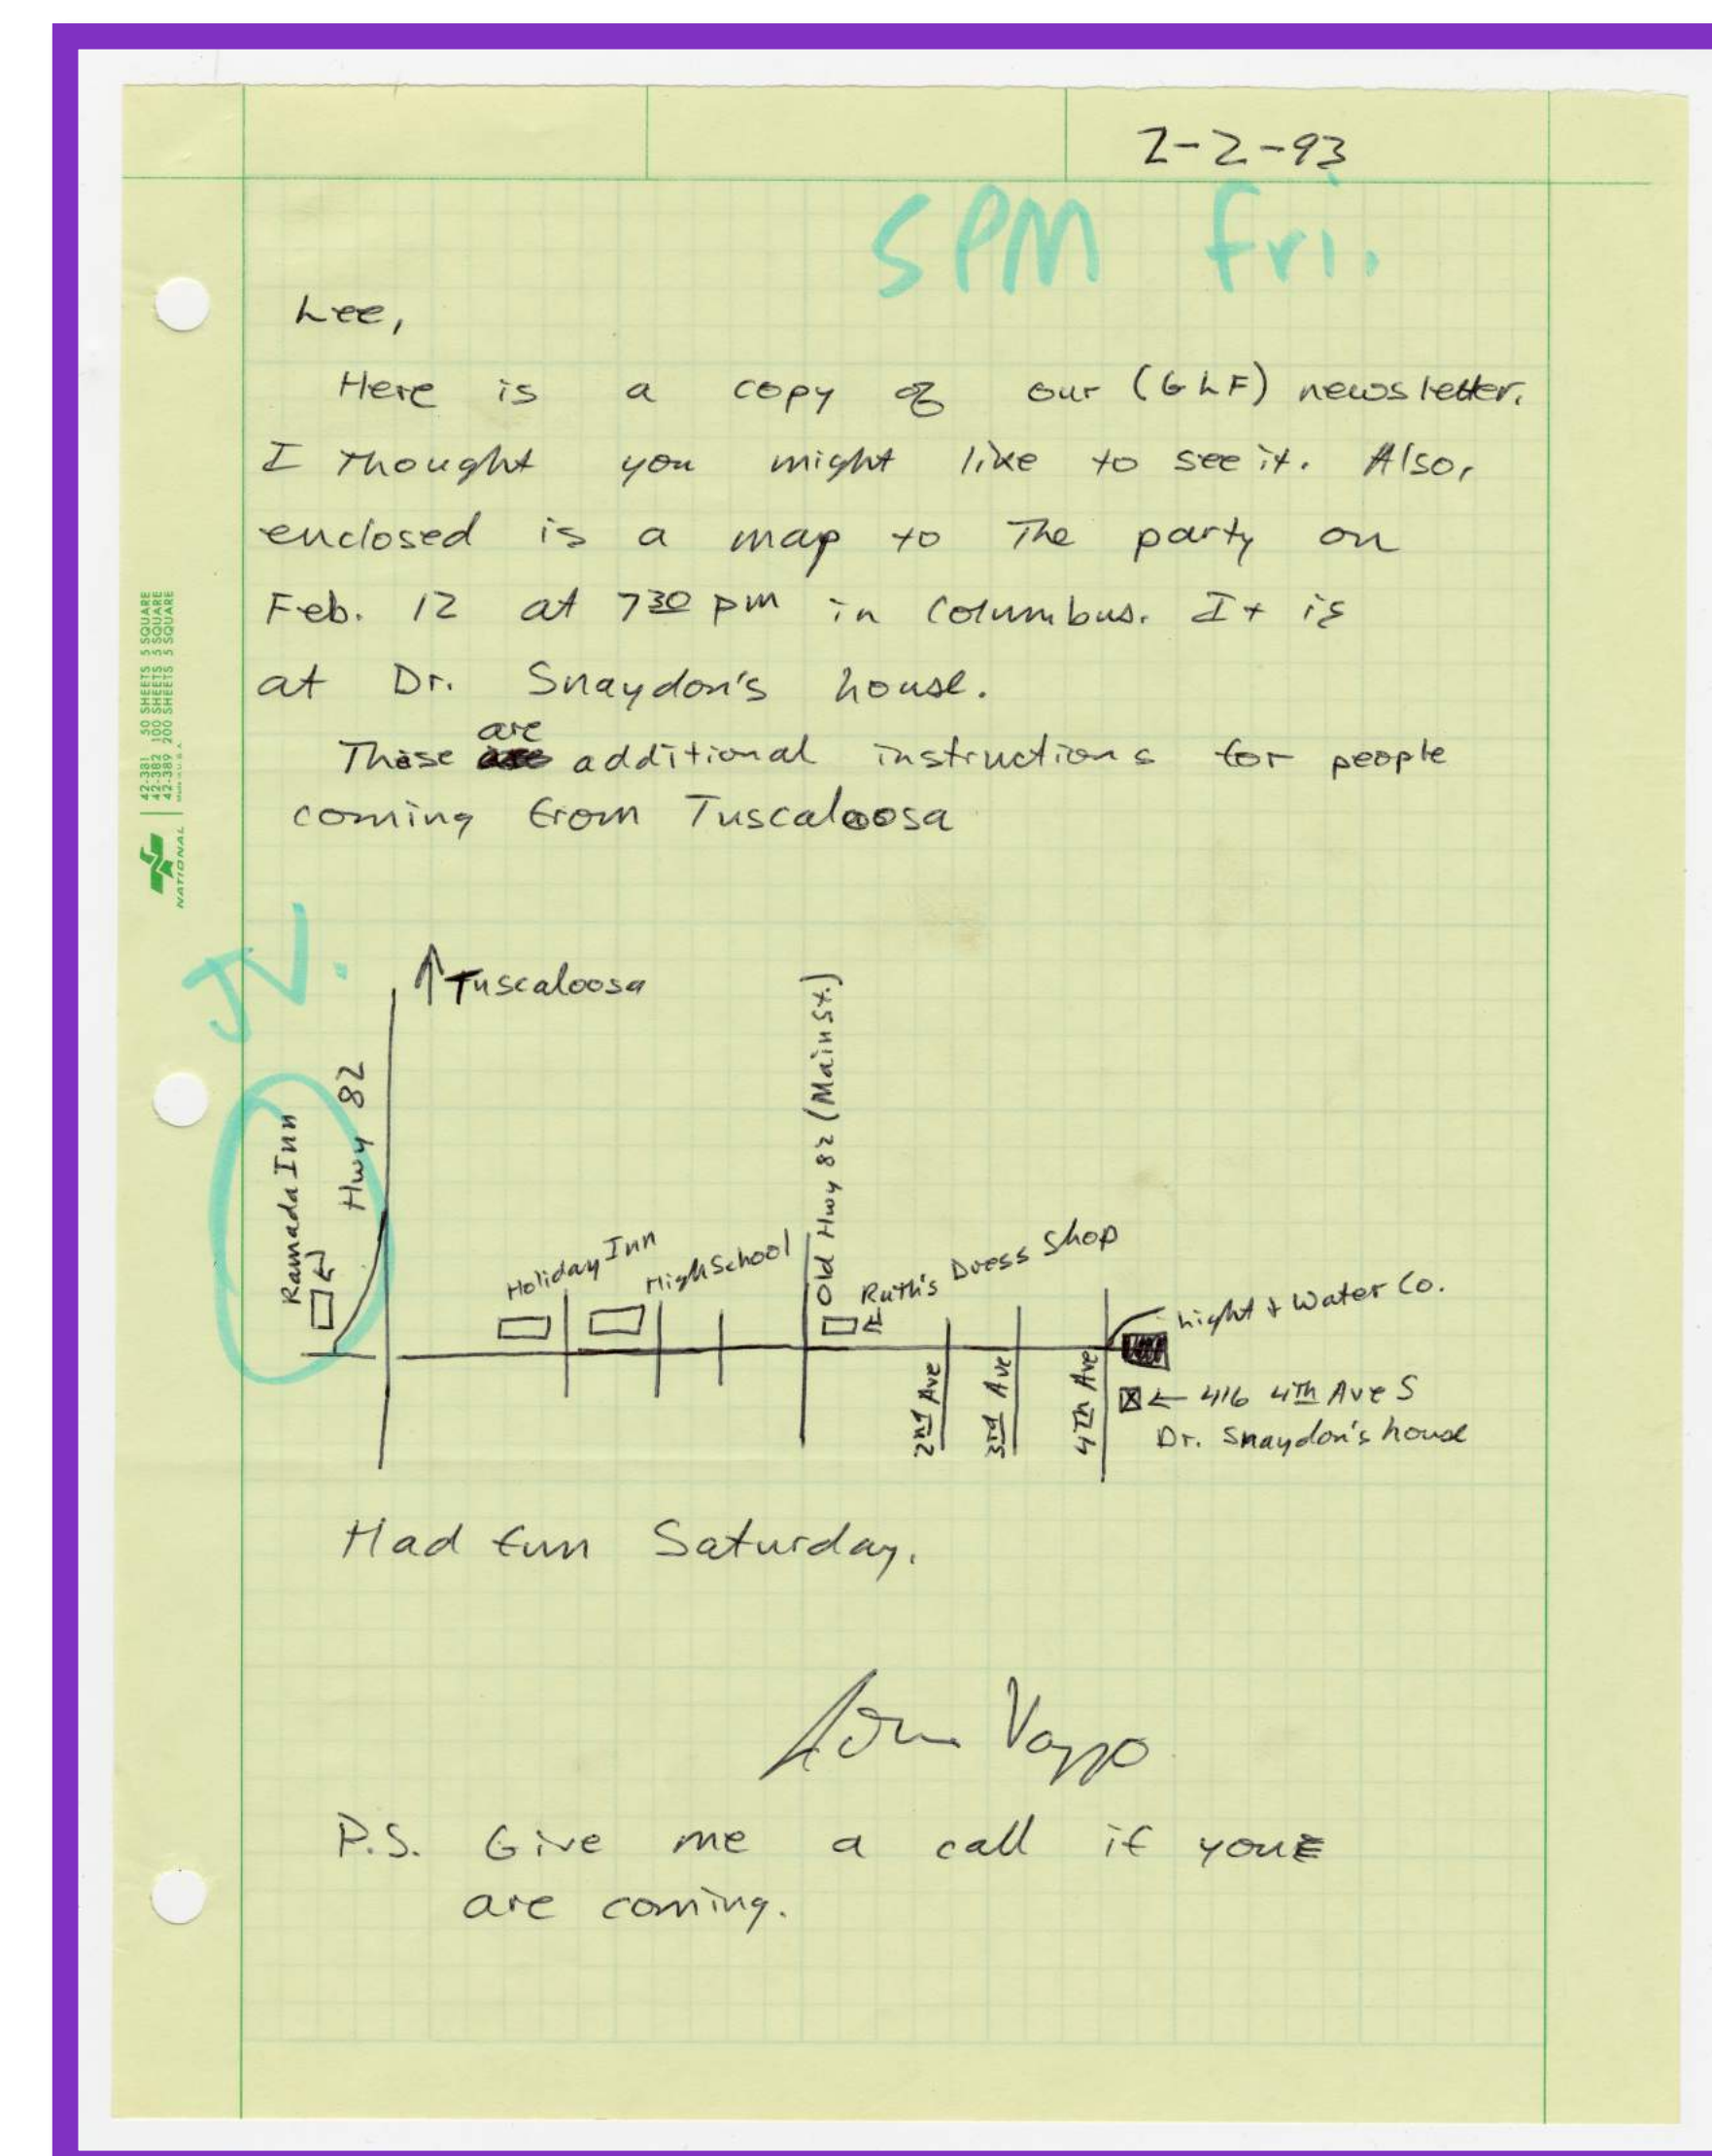 2-2-93
5PM Fri.
Lee,
Here is a copy of our (GLF) newsletter.
I thought you might like to see it. Also,
enclosed is a map to the party on
Feb. 12 at 730 pm in Columbus. It is
at Dr. Snaydon's house.
These are additional instructions for people
coming from Tuscaloosa
42-381 50 SHEETS 5 SQUARE
42-382 100 SHEETS 5 SQUARE
42-389 200 SHEETS 5 SQUARE
Made in U.S.A.
NATIONAL
JV.
Tuscaloosa
Hwy 82
Ramada Inn
Old Hwy 82 (Main St.)
Holiday Inn
High School
Ruth's Dress Shop
Light + Water Co.
2nd Ave
3rd Ave
4th Ave
416 4th Ave S
Dr. Snaydon's house
Had fun Saturday.
Vazzo
P.S. Give me a call if you
are coming.